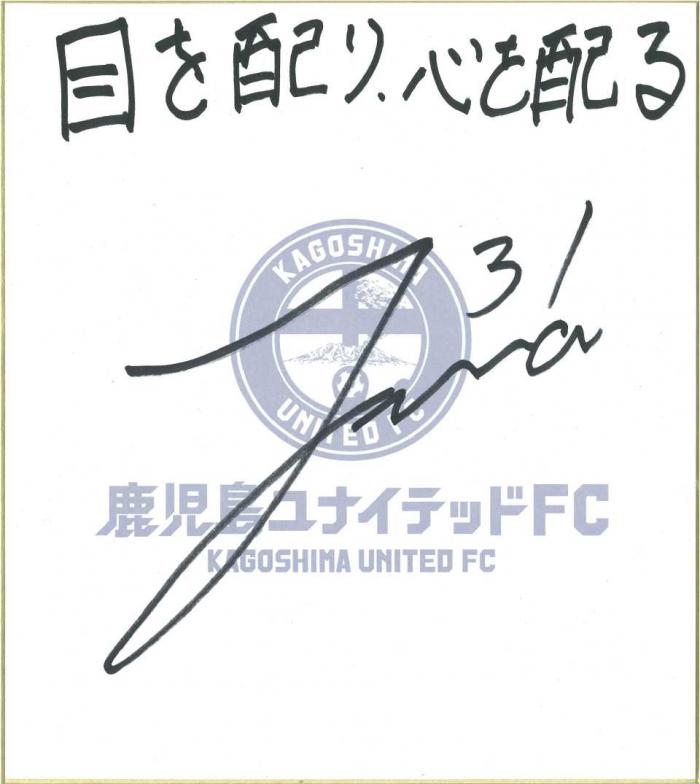 目を配り、心を配る
31
KAGOSHIMA
UNITED FC
鹿児島ユナイテッドFC
KAGOSHIMA UNITED FC